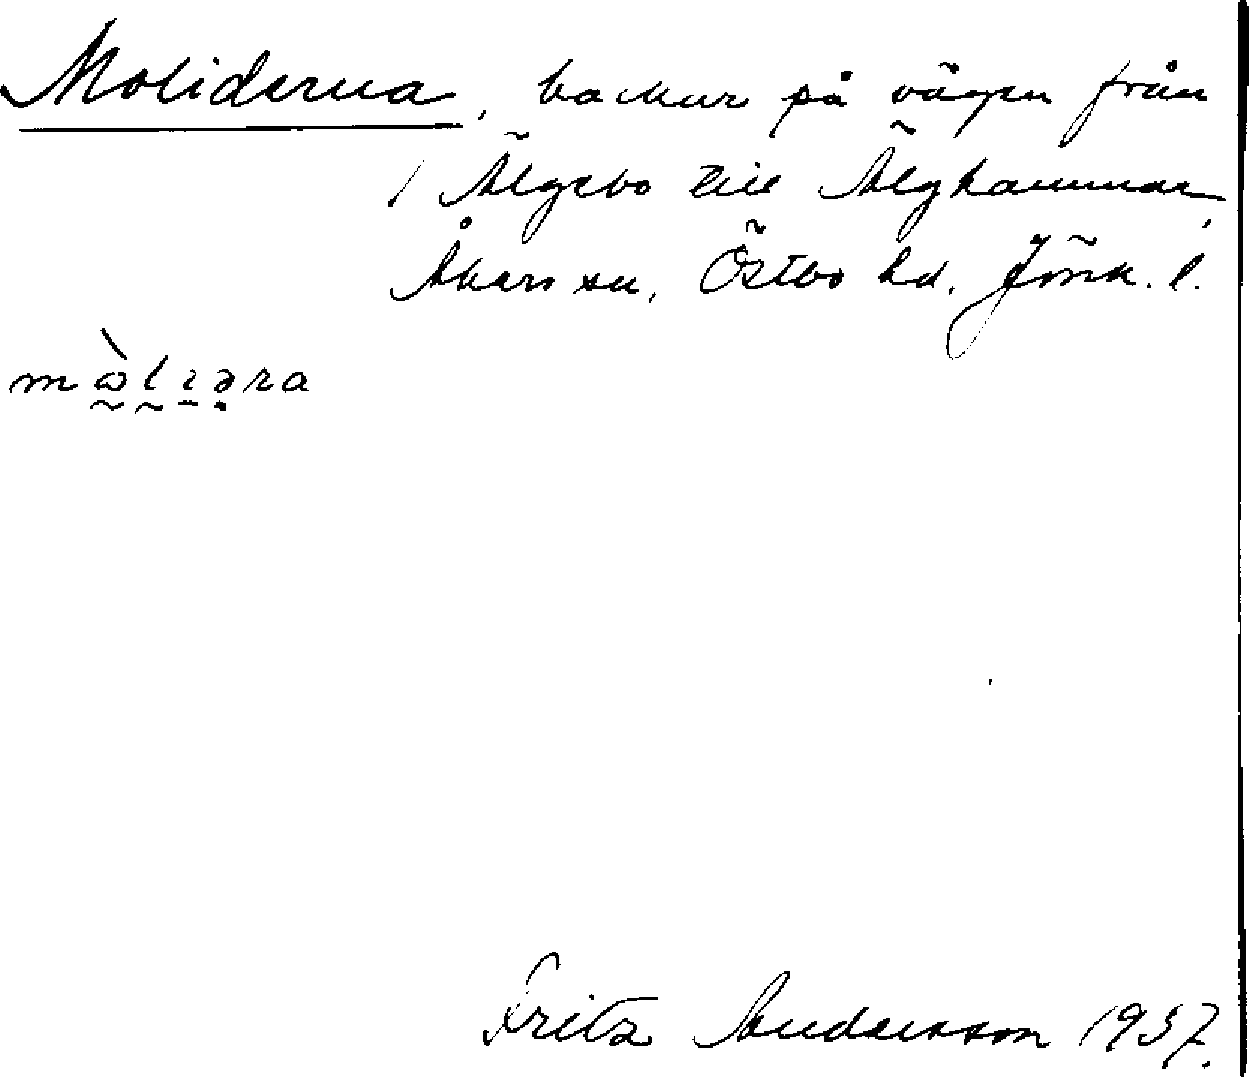 Moliderna, backar på vägen från
Älgebo till Älghammar,
Åkers sn, Östbo hd. Jönk. l.
Fritz Andersson 1937.